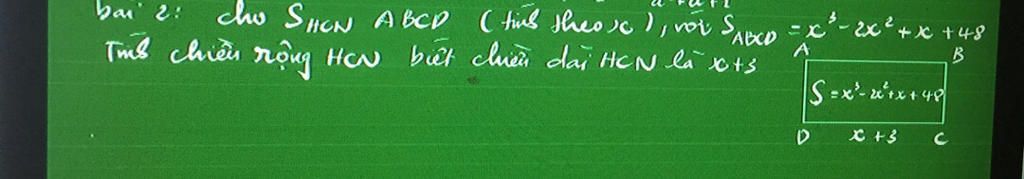 bài 2: cho S HCN ABCD (tính theo x), với S ABCD = x³ - 2x² + x + 48
Tính chiều rộng HCN biết chiều dài HCN là x+3
A B
S = x³ - 2x² + x + 48
D x + 3 C